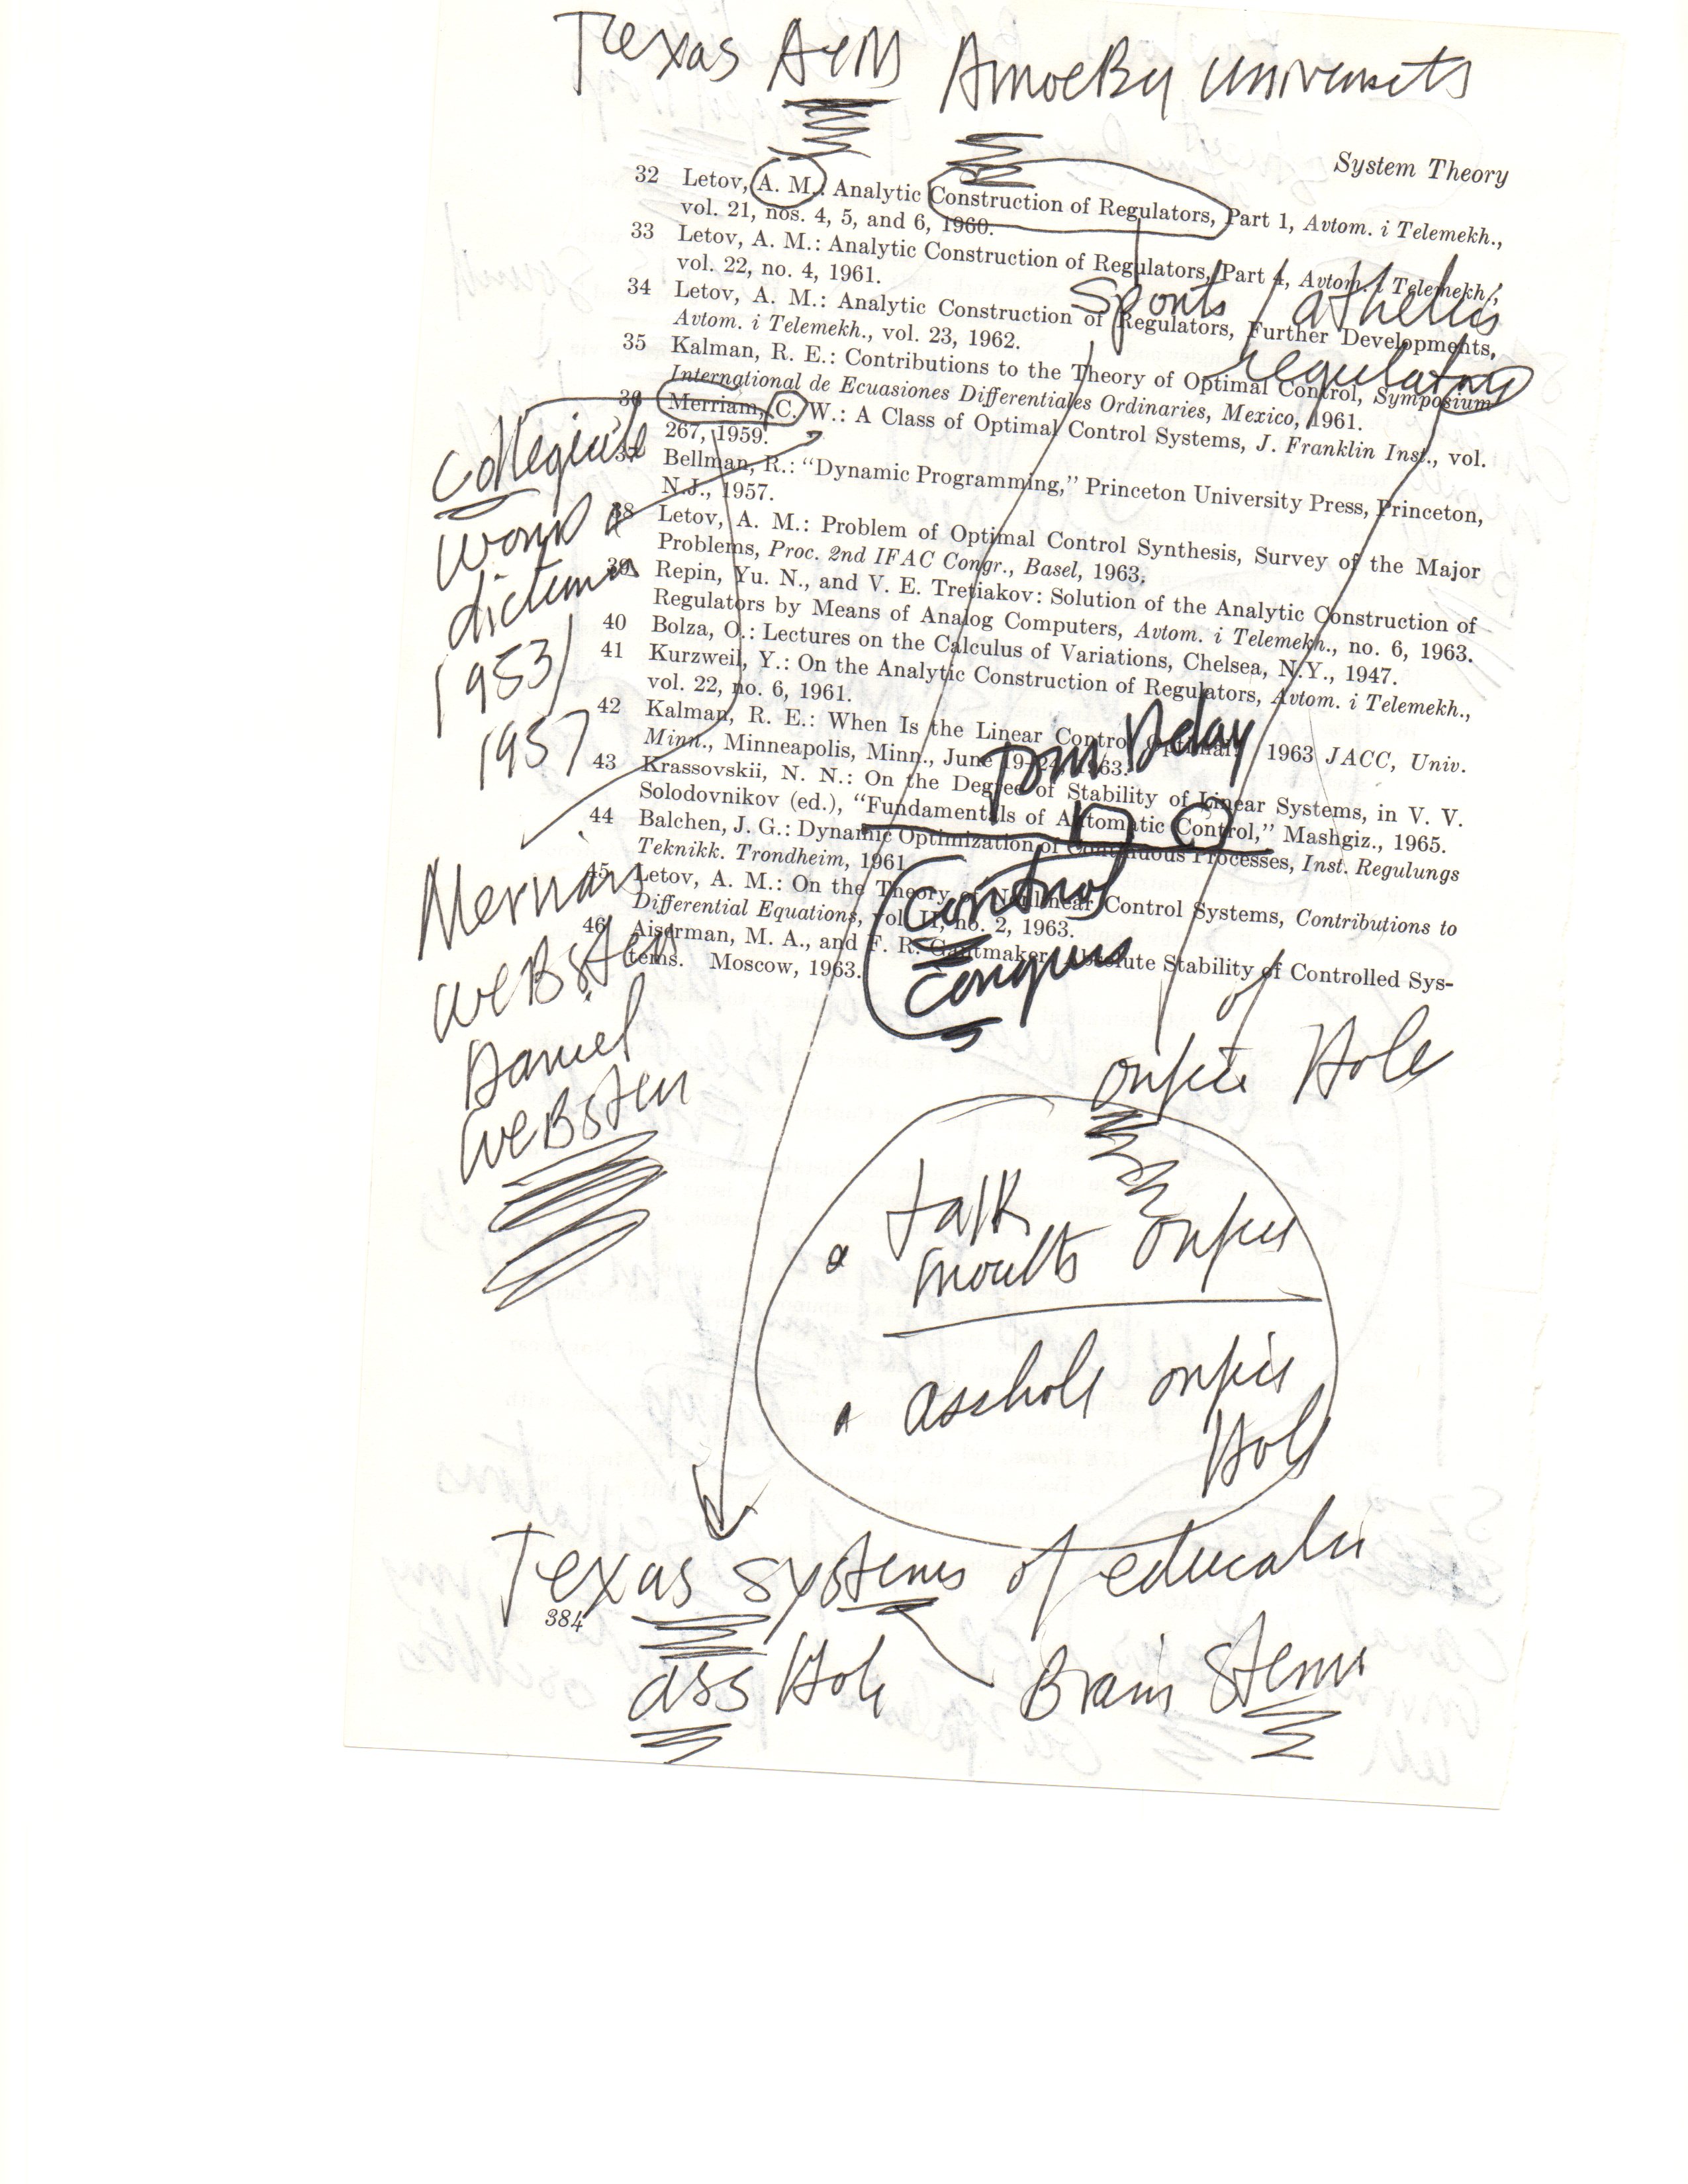 Texas A&M AmoeBy
System Theory
32 Letov, A. M.: Analytic Construction of Regulators, Part 1, Avtom. i Telemekh.,
vol. 21, nos. 4, 5, and 6, 1960.
33 Letov, A. M.: Analytic Construction of Regulators, Part 4, Avtom. i Telemekh.,
vol. 22, no. 4, 1961.
Sports /
34 Letov, A. M.: Analytic Construction of Regulators, Further Developments,
Avtom. i Telemekh., vol. 23, 1962.
35 Kalman, R. E.: Contributions to the Theory of Optimal Control, Symposium
International de Ecuasiones Differentiales Ordinaries, Mexico, 1961.
36 Merriam, C. W.: A Class of Optimal Control Systems, J. Franklin Inst., vol.
267, 1959.
37 Bellman, R.: "Dynamic Programming," Princeton University Press, Princeton,
N.J., 1957.
38 Letov, A. M.: Problem of Optimal Control Synthesis, Survey of the Major
Problems, Proc. 2nd IFAC Congr., Basel, 1963.
39 Repin, Yu. N., and V. E. Tretiakov: Solution of the Analytic Construction of
Regulators by Means of Analog Computers, Avtom. i Telemekh., no. 6, 1963.
40 Bolza, O.: Lectures on the Calculus of Variations, Chelsea, N.Y., 1947.
41 Kurzweil, Y.: On the Analytic Construction of Regulators, Avtom. i Telemekh.,
vol. 22, no. 6, 1961.
42 Kalman, R. E.: When Is the Linear Control Optimal? 1963 JACC, Univ.
Minn., Minneapolis, Minn., June 19-24, 1963.
43 Krassovskii, N. N.: On the Degree of Stability of Linear Systems, in V. V.
Solodovnikov (ed.), "Fundamentals of Automatic Control," Mashgiz., 1965.
44 Balchen, J. G.: Dynamic Optimization of Continuous Processes, Inst. Regulungs
Teknikk. Trondheim, 1961
45 Letov, A. M.: On the Theory of Nonlinear Control Systems, Contributions to
Differential Equations, vol. II, no. 2, 1963.
46 Aiserman, M. A., and F. R. Gantmaker: Absolute Stability of Controlled Sys-
tems. Moscow, 1963.
Collegiate
word
1953/
1957
Tom Delay
D C
Control
Merriam
weBster
Daniel
weBster
of
Hole
talk
asshole
Hole
Texas systems of
384
ass Hole Brain Stems